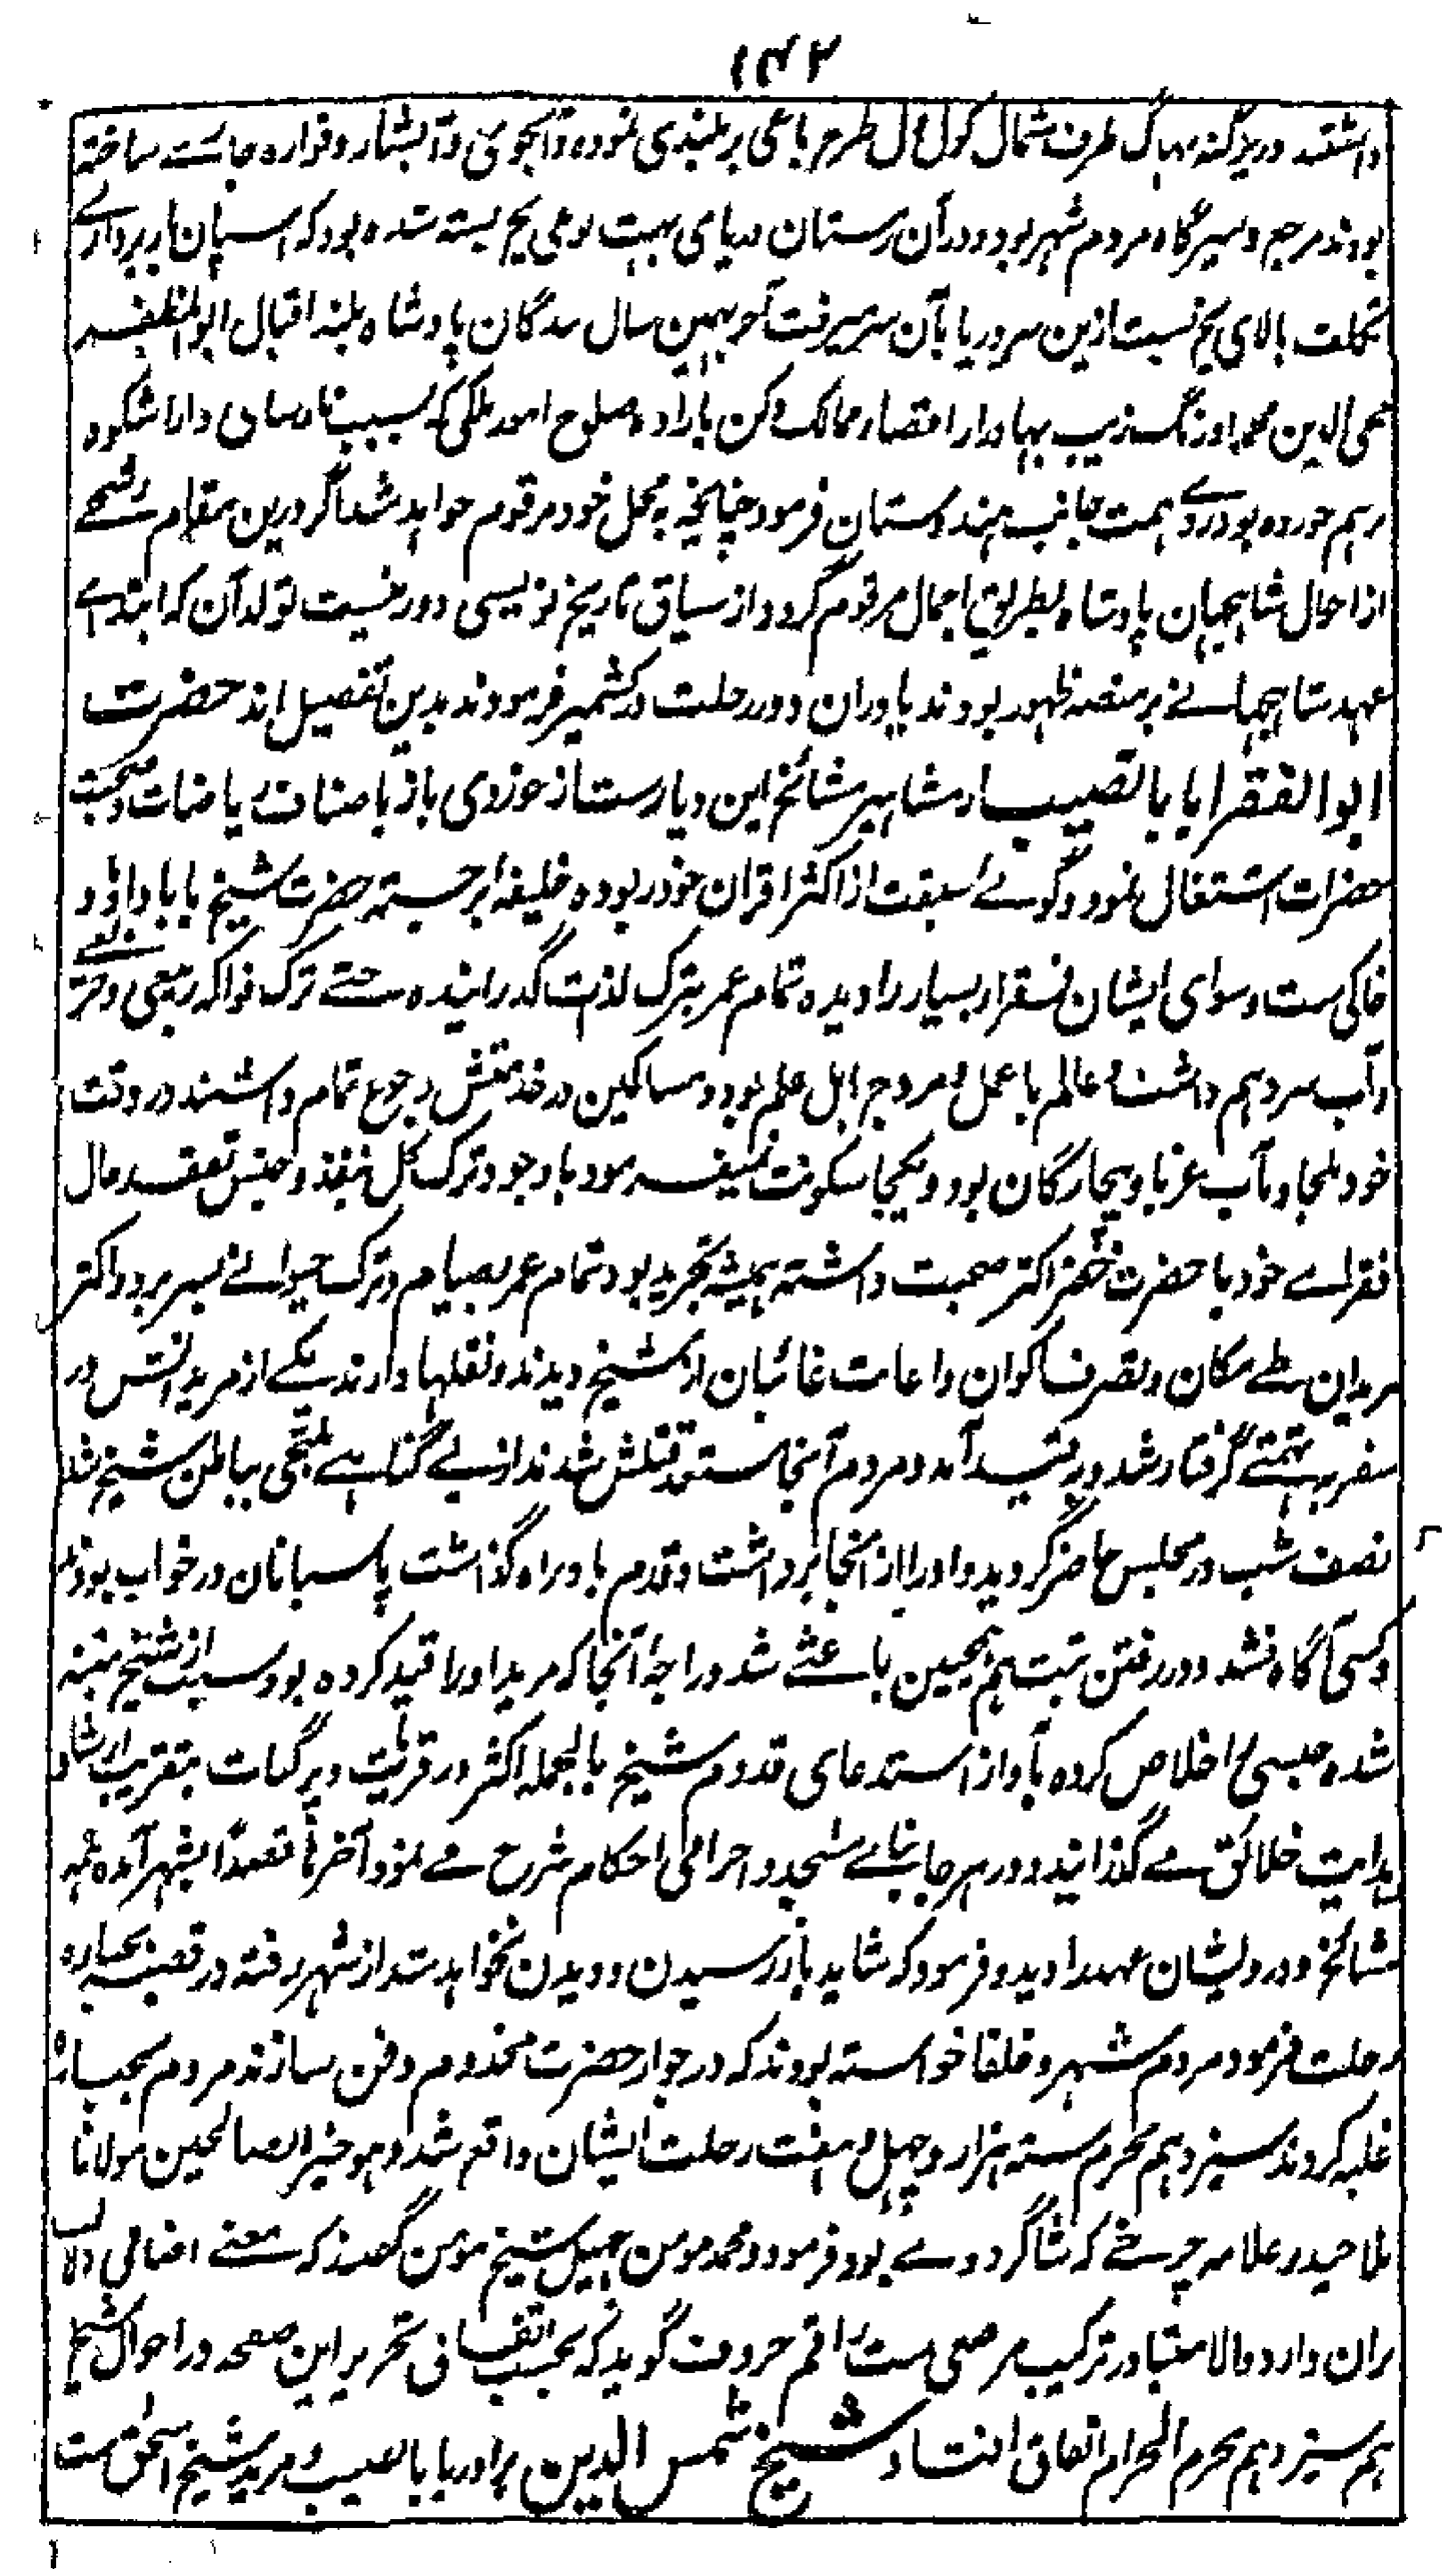 ۱۴۲
داشتند در پرگنه بهاگ طرف شمال کول ول طرح باغی بر بلندی نموده و آبجوئی و آبشار و فواره جاست ساخته
بودند مرجع و سیرگاه مردم شهر بود و در آن زمستان دریای بهت نوعی یخ بسته شده بود که اسپان باربرداری
تکلف بالای یخ نسبت ازین سر دریا بآن سر میرفت آخر همین سال بندگان پادشاه بلند اقبال ابوالمظفر
محی الدین محمد اورنگ زیب بهادر از اقصار ممالک دکن باراده صلوح امور ملکی که بسبب نارسای داراشکوه
برهم خورده بود روی همت جانب هندوستان فرمود چنانچه به محل خود مرقوم خواهد شد اگر درین مقام رشحے
از احوال شاهجهان پادشاه بطریق اجمال مرقوم گردد از سیاق تاریخ نویسی دور نیست تولد آن که ابتدای
عهد شاهجهانے بر منصه ظهور بودند یا در آن دور رحلت در کشمیر فرمودند بدین تفصیل اند حضرت
ابوالفقرا بابا نصیب از مشاهیر مشائخ این دیارست از خوردی باز باصناف ریاضات و صحبت
حضرات اشتغال نمود و گوے سبقت از اکثر اقران خود ربوده خلیفه برجسته حضرت شیخ بابا داؤد
خاکی ست و سوای ایشان فقرا بسیار را دیده تمام عمر بترک لذت گذرانیده حتے ترک فواکه ربیعی و خریفے
و آب سرد هم داشت عالم باعمل و مروج اهل علم بود و مساکین در خدمتش رجوع تمام داشتند در وقت
خود ملجا و مآب غربا و بیچارگان بود و یکجا سکونت نمیفرمود باوجود ترک کل نقد و جنس تفقد حال
فقراے خود با حضرت خضر اکثر صحبت داشته همیشه بتجرید بود تمام عمر بصیام و ترک حیوانے بسر برد و اکثر
مریدان طے مکان و تصرف اکوان و اعانت غائبان از شیخ دیدند و نقلها دارند یکے از مریدانش در
سفر به تهمتے گرفتار شد و در قید آمد و مردم آنجا مستعد قتلش شدند از بے گناهے ملتجی بباطن شیخ شد
نصف شب در محلس حاضر گردید و او را از آنجا برداشت و قدم باو براه گذاشت پاسبانان در خواب بودند
و کسی آگاه نشد و در رفتن تبت هم همین باعثے شد و راجه آنجا که مرید او را قید کرده بود سبب از شیخ متنبه
شده حبسی را خلاص کرده باواز استدعای قدوم شیخ بالجمله اکثر در قریات و پرگنات بتقریب ارشاد
هدایت خلائق مے گذانید و در هر جا بناے مسجد و اجرای احکام شرع مے نمود آخرها قصداً بشهر آمده همه
مشائخ و درویشان عهد را دید و فرمود که شاید باز رسیدن و دیدن نخواهد شد از شهر رفته در قصبه بجباره
رحلت فرمود مردم شهر و خلفا خواسته بودند که در جوار حضرت مخدوم دفن سازند مردم بجباره
غلبه کردند سیزدهم محرم سنه هزار و چهل و هفت رحلت ایشان واقع شد و هو خیر الصالحین مولانا
ملا حیدر علامه چرخے که شاگرد وے بود فرمود و محمد مومن جمیل شیخ مؤمن گفتند که معنے اضافی دلالت
بران دارد و الا معتبا در ترکیب مرصعی ست راقم حروف گوید که بحسب اتفاق تحریر این صفحه در احوال شیخ
هم سیزدهم محرم الحرام اتفاق افتاد شیخ شمس الدین برادر بابا نصیب و مرید شیخ اسحق ست